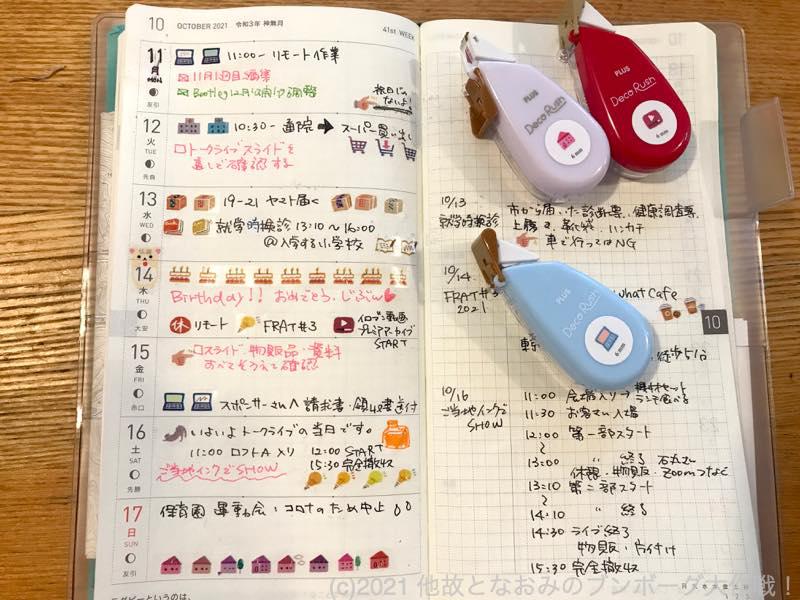 10 OCTOBER 2021 令和3年 神無月
41st WEEK
11 月 MON 友引
11:00〜 リモート作業
祝日じゃないよ!
12 火 TUE 先負
10:30〜 通院 → スーパー買い出し
トークライブスライドを
通しで確認する
13 水 WED 仏滅
19-21 ヤマト届く
就学時検診 13:10〜16:00
@入学する小学校
14 木 THU 大安
Birthday!! おめでとう、じぶん
休 リモート
FRAT#3
START
15 金 FRI 赤口
スライド、物販品・資料
すべてそろえて確認
スポンサーさんへ 請求書・領収書送付
16 土 SAT 先勝
いよいよトークライブの当日です。
11:00 ロフトA入り
12:00 START
15:30 完全撤収
ご当地インクでSHOW
17 日 SUN 友引
保育園 運動会:コロナのため中止
PLUS
Deco Rush
6 mm
PLUS
Deco Rush
6 mm
10/13
就学時検診
市から届いた診断票、健康調査票、
車で行ってはNG
PLUS
Deco Rush
6 mm
10/14
FRAT#3
2021
What Cafe
徒歩5分
10
10/16
ご当地インクで
SHOW
11:00 会場入り→ 機材セット
11:30 お客さん入場
12:00 第一部スタート
13:00 〃 終了
休憩・物販・Zoomつなぐ
13:10 第二部スタート
14:10 〃 終了
14:30 ライブ終了
物販・片付け
15:30 完全撤収
(c)2021 他故となおみのブンボーグ大作戦!